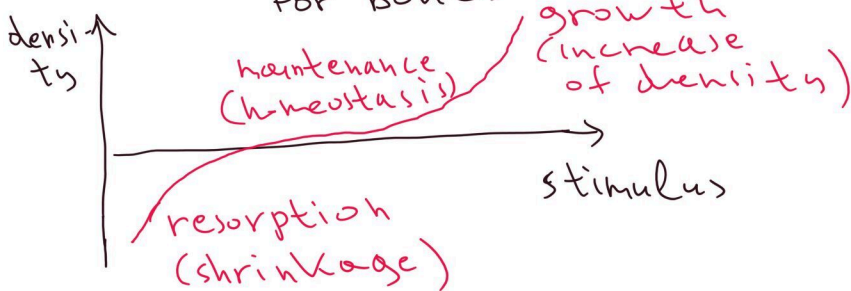 for bone
densi-
ty
maintenance
(homeostasis)
growth
(increase
of density)
stimulus
resorption
(shrinkage)